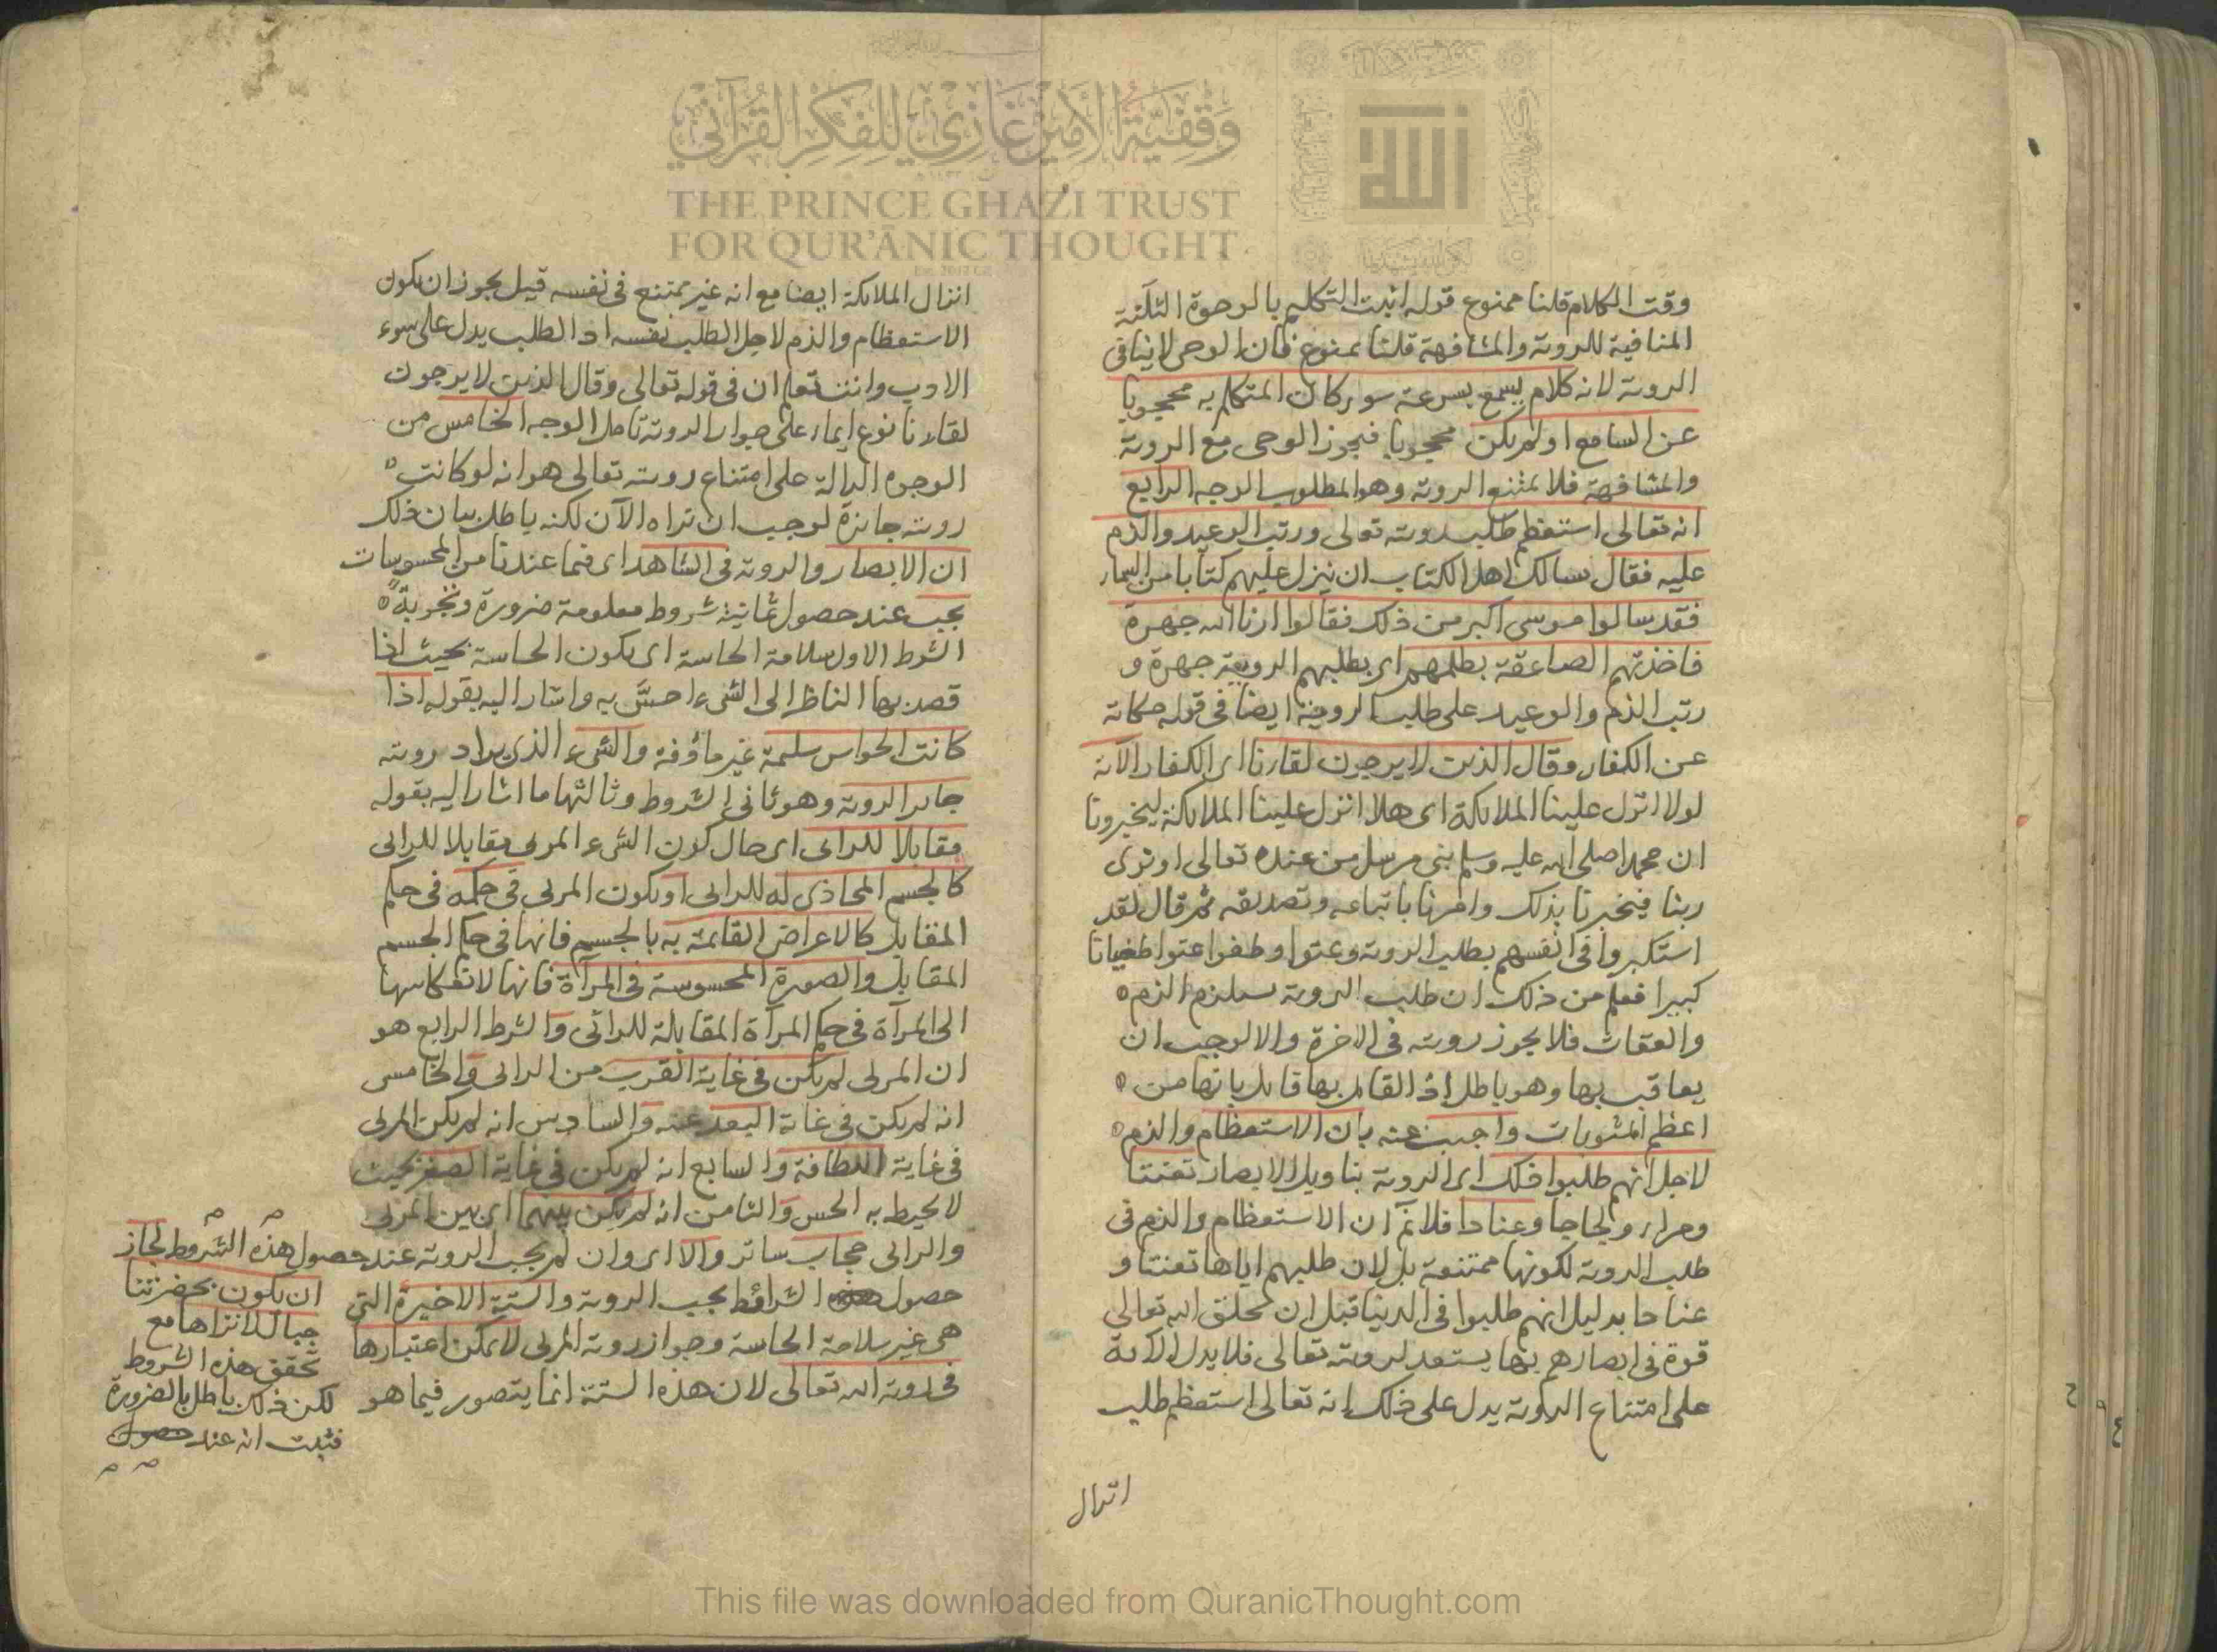 وقفية الأمير غازي للفكر القرآني
THE PRINCE GHAZI TRUST
FOR QUR'ĀNIC THOUGHT
الله
وقت الكلام قلنا ممنوع قوله اثبت التكليم بالوجوه الثلثة
المنافية للروية والمشافهة قلنا ممنوع فان الوحى لا ينافى
الروية لانه كلام يسمع بسرعة سواء كان المتكلم به محجوبا
عن السامع او لم يكن محجوبا فيجوز الوحى مع الروية
والمشافهة فلا يمتنع الروية وهو المطلوب الوجه الرابع
انه تعالى استعظم طلب رويته تعالى ورتب الوعيد والذم
عليه فقال يسالك اهل الكتاب ان ينزل عليهم كتابا من السماء
فقد سالوا موسى اكبر من ذلك فقالوا ارنا الله جهرة
فاخذتهم الصاعقة بظلمهم اى بطلبهم الروية جهرة و
رتب الذم والوعيد على طلب الروية ايضا فى قوله حكاية
عن الكفار وقال الذين لا يرجون لقاءنا اى الكفار الآية
لولا انزل علينا الملائكة اى هلا انزل علينا الملائكة ليخبرونا
ان محمدا صلى الله عليه وسلم نبى مرسل من عنده تعالى او نرى
ربنا فيخبرنا بذلك وامرنا باتباعه وتصديقه ثم قال لقد
استكبروا فى انفسهم بطلب الروية وعتوا وطغوا عتوا طغيانا
كبيرا فعلم من ذلك ان طلب الروية يستلزم الذم
والعقاب فلا يجوز رويته فى الاخرة والا لوجب ان
يعاقب بها وهو باطل اذ القائل بها قائل بانها من
اعظم المثوبات واجيب عنه بان الاستعظام والذم
لاجل انهم طلبوا ذلك اى الروية بتاويل الابصار تعنتا
ومراء ولجاجا وعنادا فلا نم ان الاستعظام والذم فى
طلب الروية لكونها ممتنعة بل لان طلبهم اياها تعنتا و
عنادا بدليل انهم طلبوا فى الدنيا قبل ان يخلق الله تعالى
قوة فى ابصارهم بها يستعد لرويته تعالى فلا يدل الآية
على امتناع الروية يدل على ذلك انه تعالى استعظم طلب
انزال
انزال الملائكة ايضا مع انه غير ممتنع فى نفسه قيل يجوز ان يكون
الاستعظام والذم لاجل الطلب نفسه اذ الطلب يدل على سوء
الادب وانت تعلم ان فى قوله تعالى وقال الذين لا يرجون
لقاءنا نوع ايماء على جواز الروية تامل الوجه الخامس من
الوجوه الدالة على امتناع رويته تعالى هو انه لو كانت
رويته جائزة لوجب ان نراه الآن لكنه باطل بيان ذلك
ان الابصار والروية فى الشاهد اى فيما عندنا من المحسوسات
يجب عند حصول ثمانية شروط معلومة ضرورة وتجربة
الشرط الاول سلامة الحاسة اى يكون الحاسة بحيث اذا
قصد بها الناظر الى الشىء احسّ به واشار اليه بقوله اذا
كانت الحواس سليمة غير مأوفة والشىء الذى يراد رويته
جائز الروية وهو ثانى الشروط وثالثها ما اشار اليه بقوله
مقابلا للرائى اى حال كون الشىء المرئى مقابلا للرائى
كالجسم المحاذى له للرائى او يكون المرئى فى حكمه فى حكم
المقابل كالاعراض القائمة به بالجسم فانها فى حكم الجسم
المقابل والصورة المحسوسة فى المرآة فانها لانعكاسها
الى المرآة فى حكم المرآة المقابلة للرائى والشرط الرابع هو
ان المرئى لم يكن فى غاية القرب من الرائى والخامس
انه لم يكن فى غاية البعد عنه والسادس انه لم يكن المرئى
فى غاية اللطافة والسابع انه لم يكن فى غاية الصغر بحيث
لا يحيط به الحس والثامن انه لم يكن بينهما اى بين المرئى
والرائى حجاب ساتر والا اى وان لم يجب الروية عند حصول هذه الشروط لجاز
ان يكون بحضرتنا
جبال لا نراها مع
تحقق هذه الشروط
لكن ذلك باطل بالضرورة
فثبت انه عند حصول
حصول الشرائط يجب الروية والستة الاخيرة التى
هى غير سلامة الحاسة وجواز روية المرئى لا يمكن اعتبارها
فى روية الله تعالى لان هذه الستة انما يتصور فيما هو
This file was downloaded from QuranicThought.com